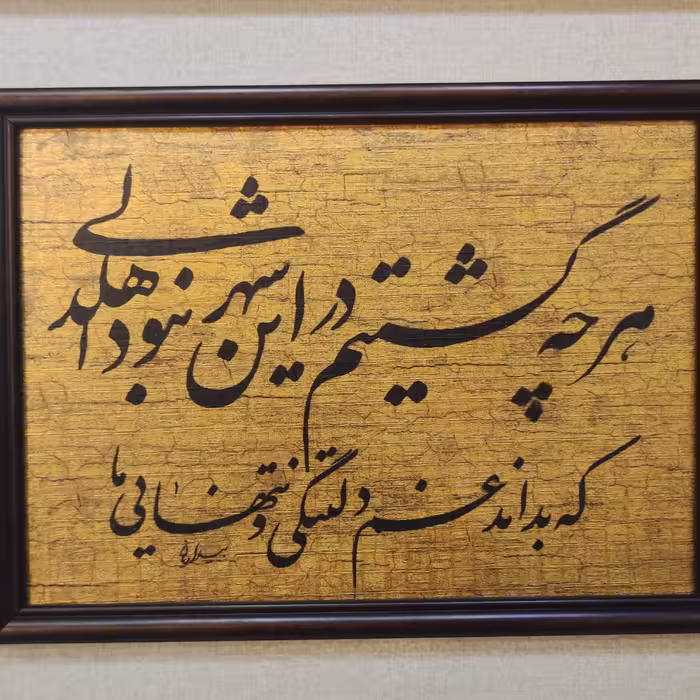 هرچه گشتیم در این شهر نبود اهلدلی
که بداند غم دلتنگی و تنهایی ما